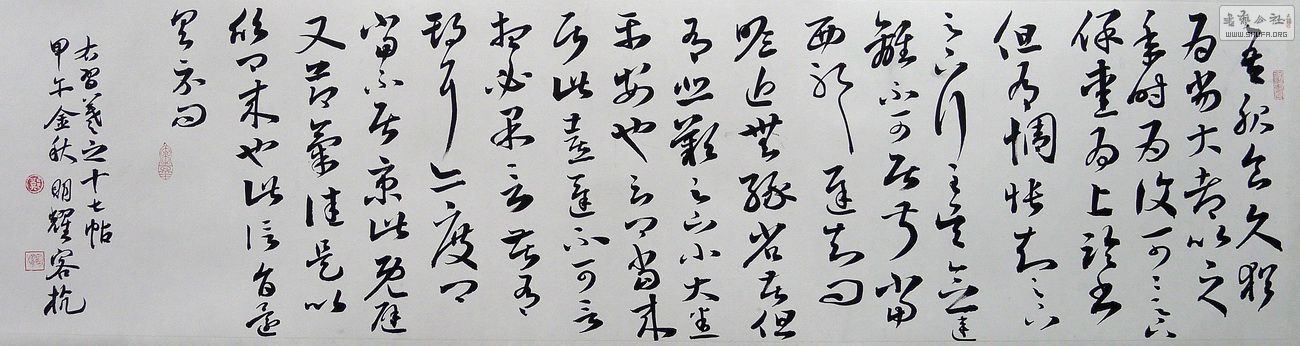 吾服食久猶
為劣大都比之
年時為復可〻足下
保愛為上臨書
但有惆悵知足下
足下行至吳念違
離不可居叔當
西耶遲知問
瞻近無緣省苦但
有悲歎足下小大悉
平安也云卿當來
居此喜遲不可言
想必果言告有
期耳亦度卿
當不居京此既避
又節氣佳是以
欣卿來也此信旨還
具示問
右習羲之十七帖
甲午金秋明耀客杭
書藝公社
WWW.SHUFA.ORG